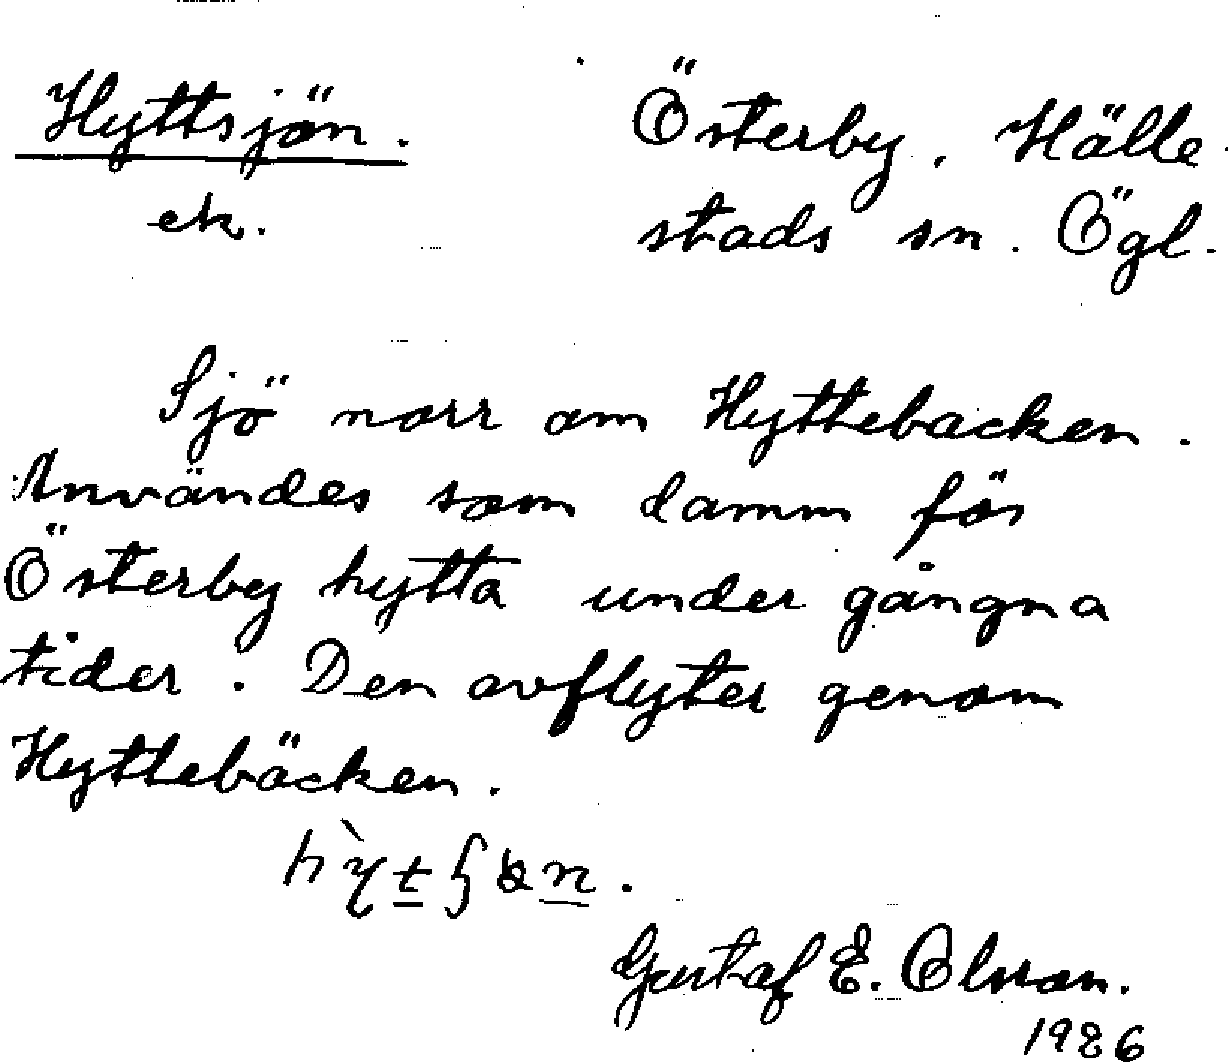 Hyttsjön. Österby, Hälle-
ek. stads sn. Ögl.
Sjö norr om Hyttebacken.
Användes som damm för
Österby hytta under gångna
tider. Den avflyter genom
Hyttebäcken.
Gustaf E. Olsson.
1926